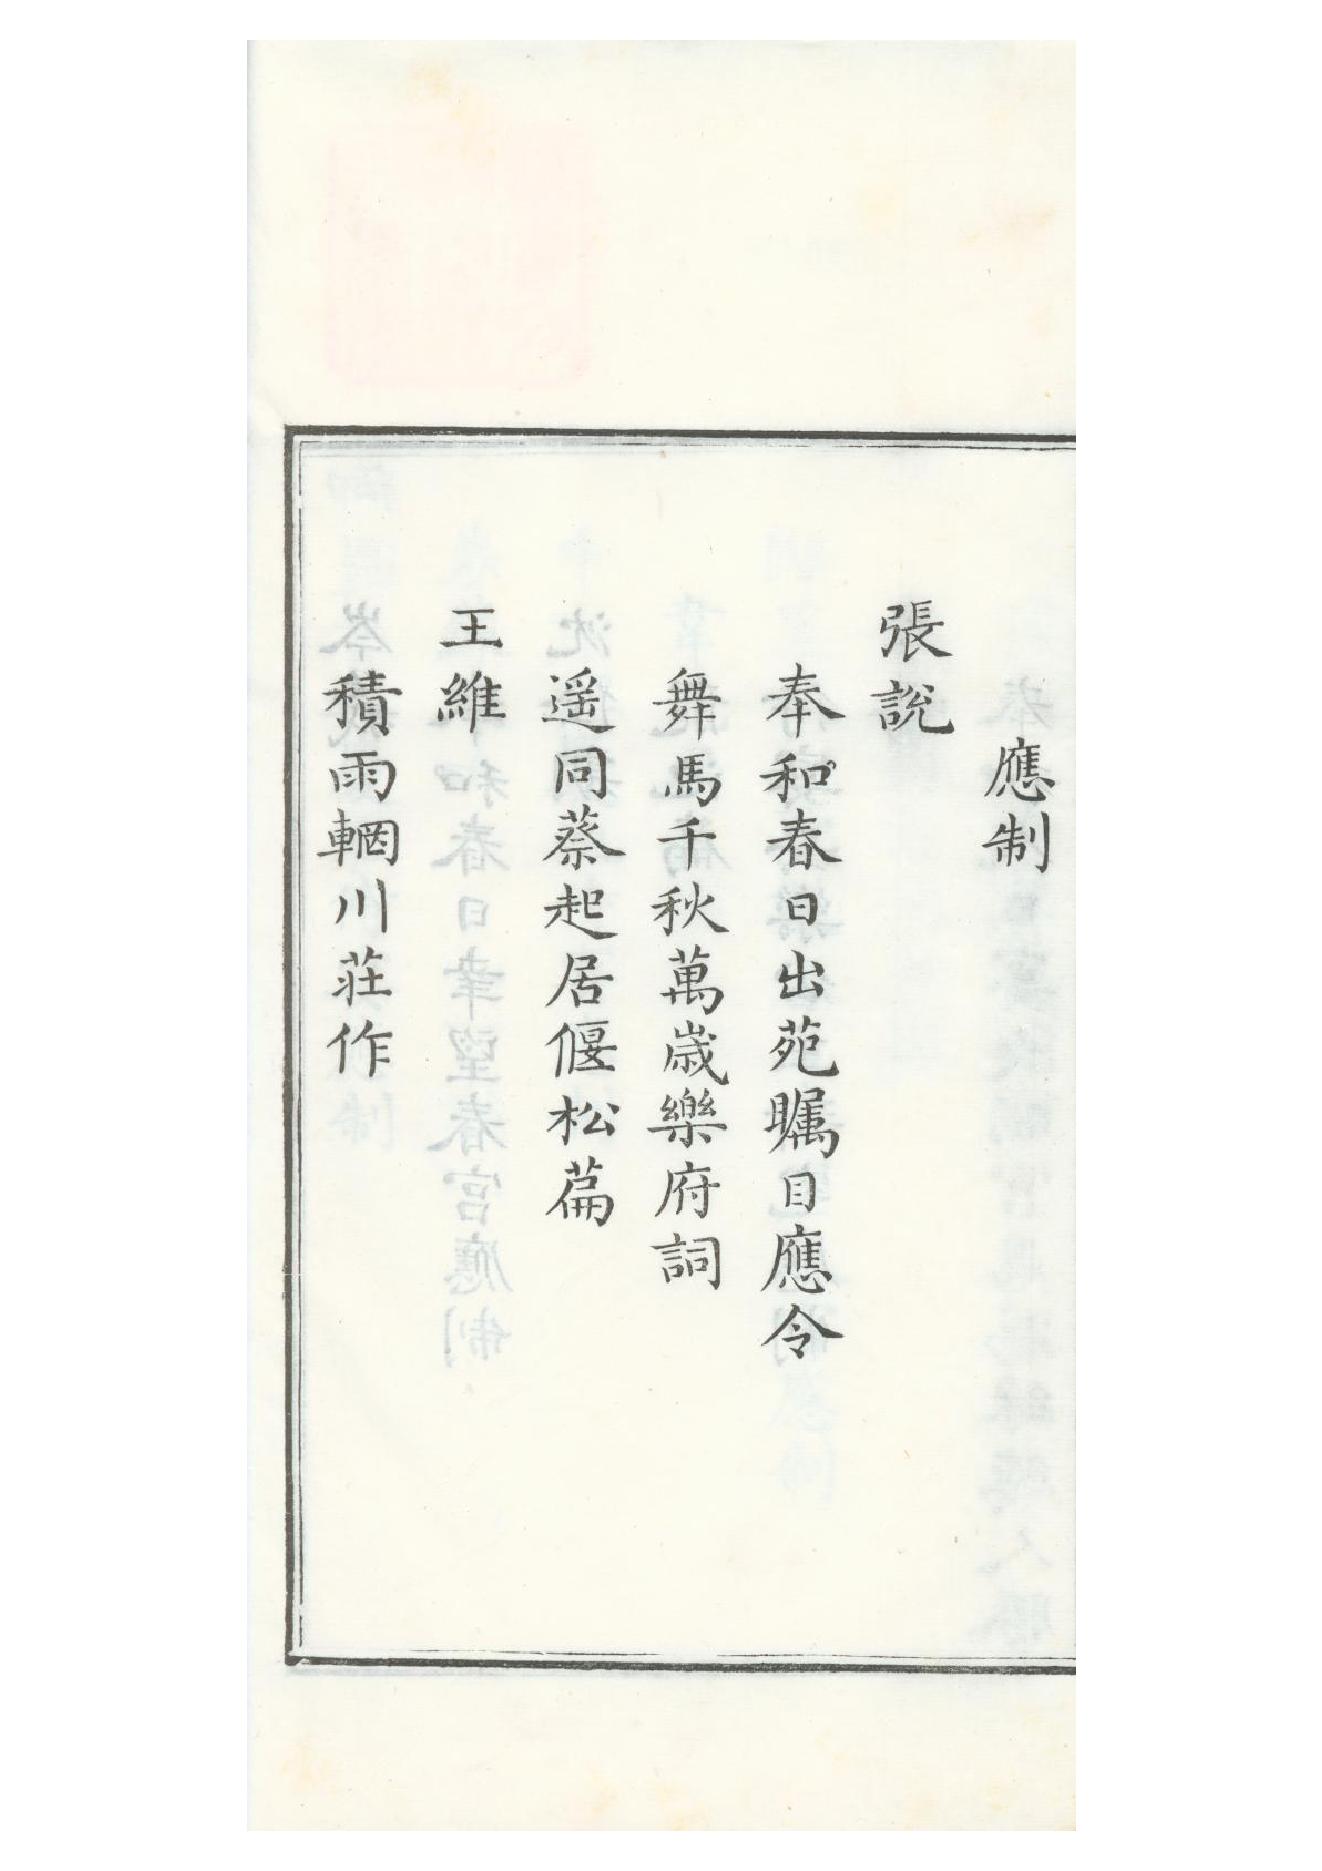 應制
張說
奉和春日出苑矚目應令
舞馬千秋萬歲樂府詞
遥同蔡起居偃松篇
王維
積雨輞川莊作